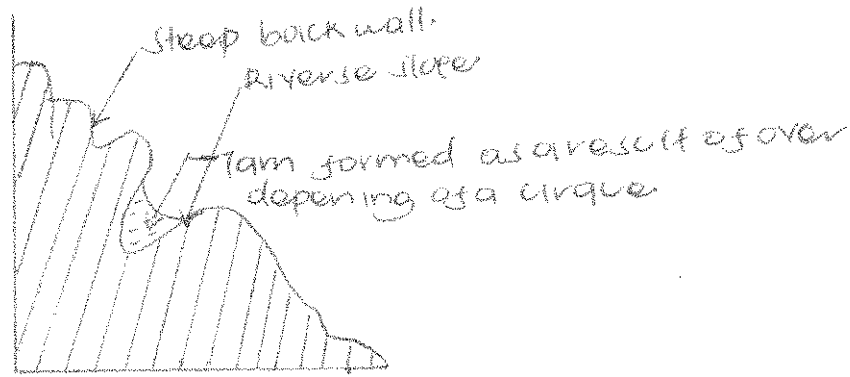 Steap back wall.
Riverse slope
Tarn formed as a result of over
depening of a cirque